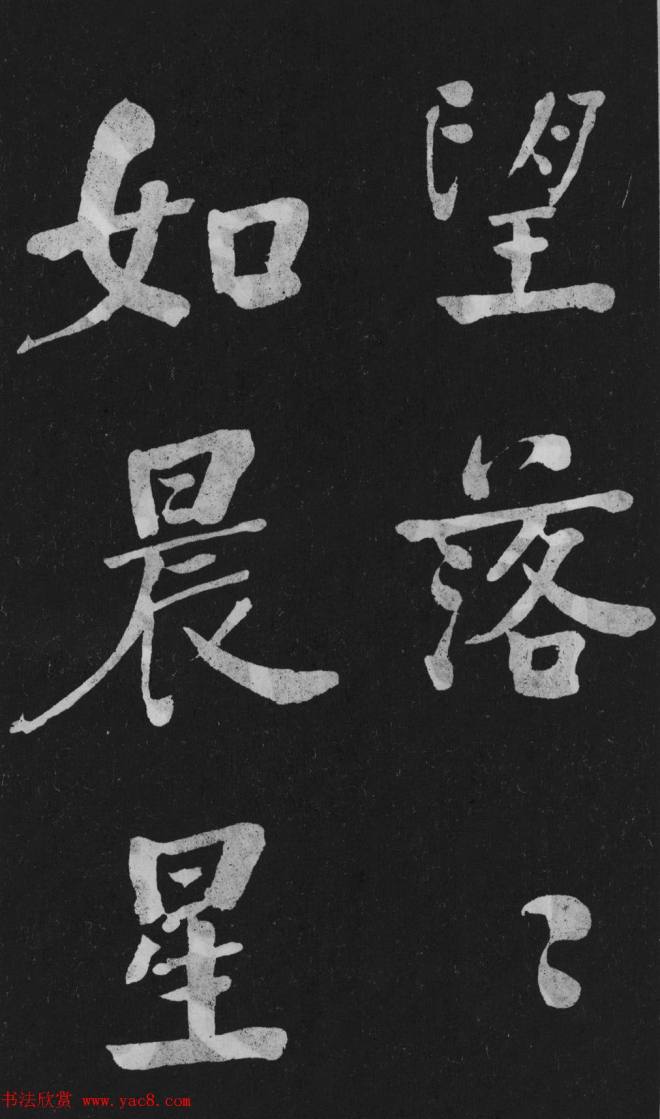 望落〻
如晨星
书法欣赏 www.yac8.com